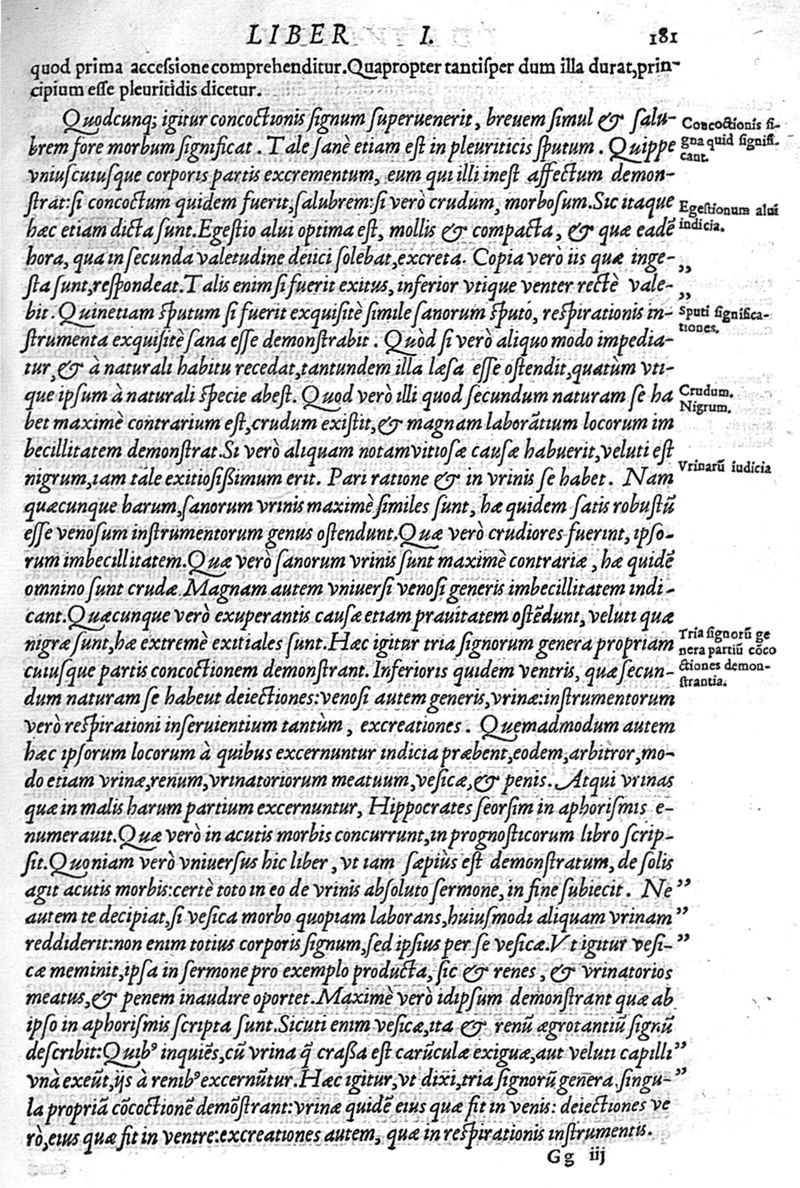 LIBER I. 181
quod prima accessione comprehenditur. Quapropter tantisper dum illa durat, prin-
cipium esse pleuritidis dicetur.
Quodcunq; igitur concoctionis signum superuenerit, breuem simul & salu-
brem fore morbum significat. Tale sanè etiam est in pleuriticis sputum. Quippe
vniuscuiusque corporis partis excrementum, eum qui illi inest affectum demon-
strat: si concoctum quidem fuerit, salubrem: si verò crudum, morbosum. Sic itaque
hæc etiam dicta sunt. Egestio alui optima est, mollis & compacta, & quæ eadē
hora, qua in secunda valetudine deiici solebat, excreta. Copia verò iis quæ inge-„
sta sunt, respondeat. Talis enim si fuerit exitus, inferior vtique venter rectè vale-„
bit. Quinetiam sputum si fuerit exquisitè simile sanorum sputo, respirationis in-
strumenta exquisitè sana esse demonstrabit. Quòd si verò aliquo modo impedia-
tur, & à naturali habitu recedat, tantundem illa læsa esse ostendit, quātùm vti-
que ipsum à naturali specie abest. Quod verò illi quod secundum naturam se ha
bet maximè contrarium est, crudum existit, & magnam laborātium locorum im
becillitatem demonstrat. Si verò aliquam notam vitiosæ causæ habuerit, veluti est
nigrum, iam tale exitiosissimum erit. Pari ratione & in vrinis se habet. Nam
quæcunque harum, sanorum vrinis maximè similes sunt, hæ quidem satis robustū
esse venosum instrumentorum genus ostendunt. Quæ verò crudiores fuerint, ipso-
rum imbecillitatem. Quæ verò sanorum vrinis sunt maximè contrariæ, hæ quidē
omnino sunt crudæ. Magnam autem vniuersi venosi generis imbecillitatem indi-
cant. Quæcunque verò exuperantis causæ etiam prauitatem ostēdunt, veluti quæ
nigræ sunt, hæ extremè exitiales sunt. Hæc igitur tria signorum genera propriam
cuiusque partis concoctionem demonstrant. Inferioris quidem ventris, quæ secun-
dum naturam se habeut deiectiones: venosi autem generis, vrinæ: instrumentorum
verò respirationi inseruientium tantùm, excreationes. Quemadmodum autem
hæc ipsorum locorum à quibus excernuntur indicia præbent, eodem, arbitror, mo-
do etiam vrinæ, renum, vrinatoriorum meatuum, vesicæ, & penis. Atqui vrinas
quæ in malis harum partium excernuntur, Hippocrates seorsim in aphorismis e-
numerauit. Quæ verò in acutis morbis concurrunt, in prognosticorum libro scrip-
sit. Quoniam verò vniuersus hic liber, vt iam sæpiùs est demonstratum, de solis
agit acutis morbis: certè toto in eo de vrinis absoluto sermone, in fine subiecit. Ne ”
autem te decipiat, si vesica morbo quopiam laborans, huiusmodi aliquam vrinam ”
reddiderit: non enim totius corporis signum, sed ipsius per se vesicæ. Vt igitur vesi- ”
cæ meminit, ipsa in sermone pro exemplo producta, sic & renes, & vrinatorios
meatus, & penem inaudire oportet. Maximè verò idipsum demonstrant quæ ab
ipso in aphorismis scripta sunt. Sicuti enim vesicæ, ita & renū ægrotantiū signū
describit: Quibꝰ inquiēs, cū vrina q̄ crassa est carūculæ exiguæ, aut veluti capilli ”
vnà exeūt, ijs à renibꝰ excernūtur. Hæc igitur, vt dixi, tria signorū genera, singu- ”
la propriā cōcoctionē demōstrant: vrinæ quidē eius quæ fit in venis: deiectiones ve
rò, eius quæ fit in ventre: excreationes autem, quæ in respirationis instrumentis.
Gg iij
Concoctionis si-
gna quid signifi-
cant.
Egestionum alui
indicia.
Sputi significa-
tiones.
Crudum.
Nigrum.
Vrinarū iudicia
Tria signorū ge
nera partiū cōco
ctiones demon-
strantia.